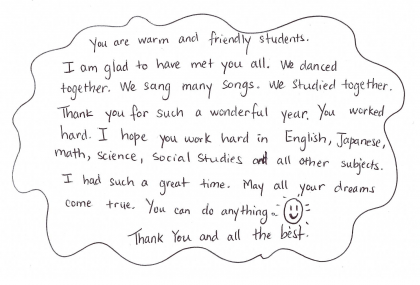 You are warm and friendly students.
I am glad to have met you all. We danced
together. We sang many songs. We studied together.
Thank you for such a wonderful year. You worked
hard. I hope you work hard in English, Japanese,
math, science, Social Studies and all other subjects.
I had such a great time. May all your dreams
come true. You can do anything.
Thank You and all the best.